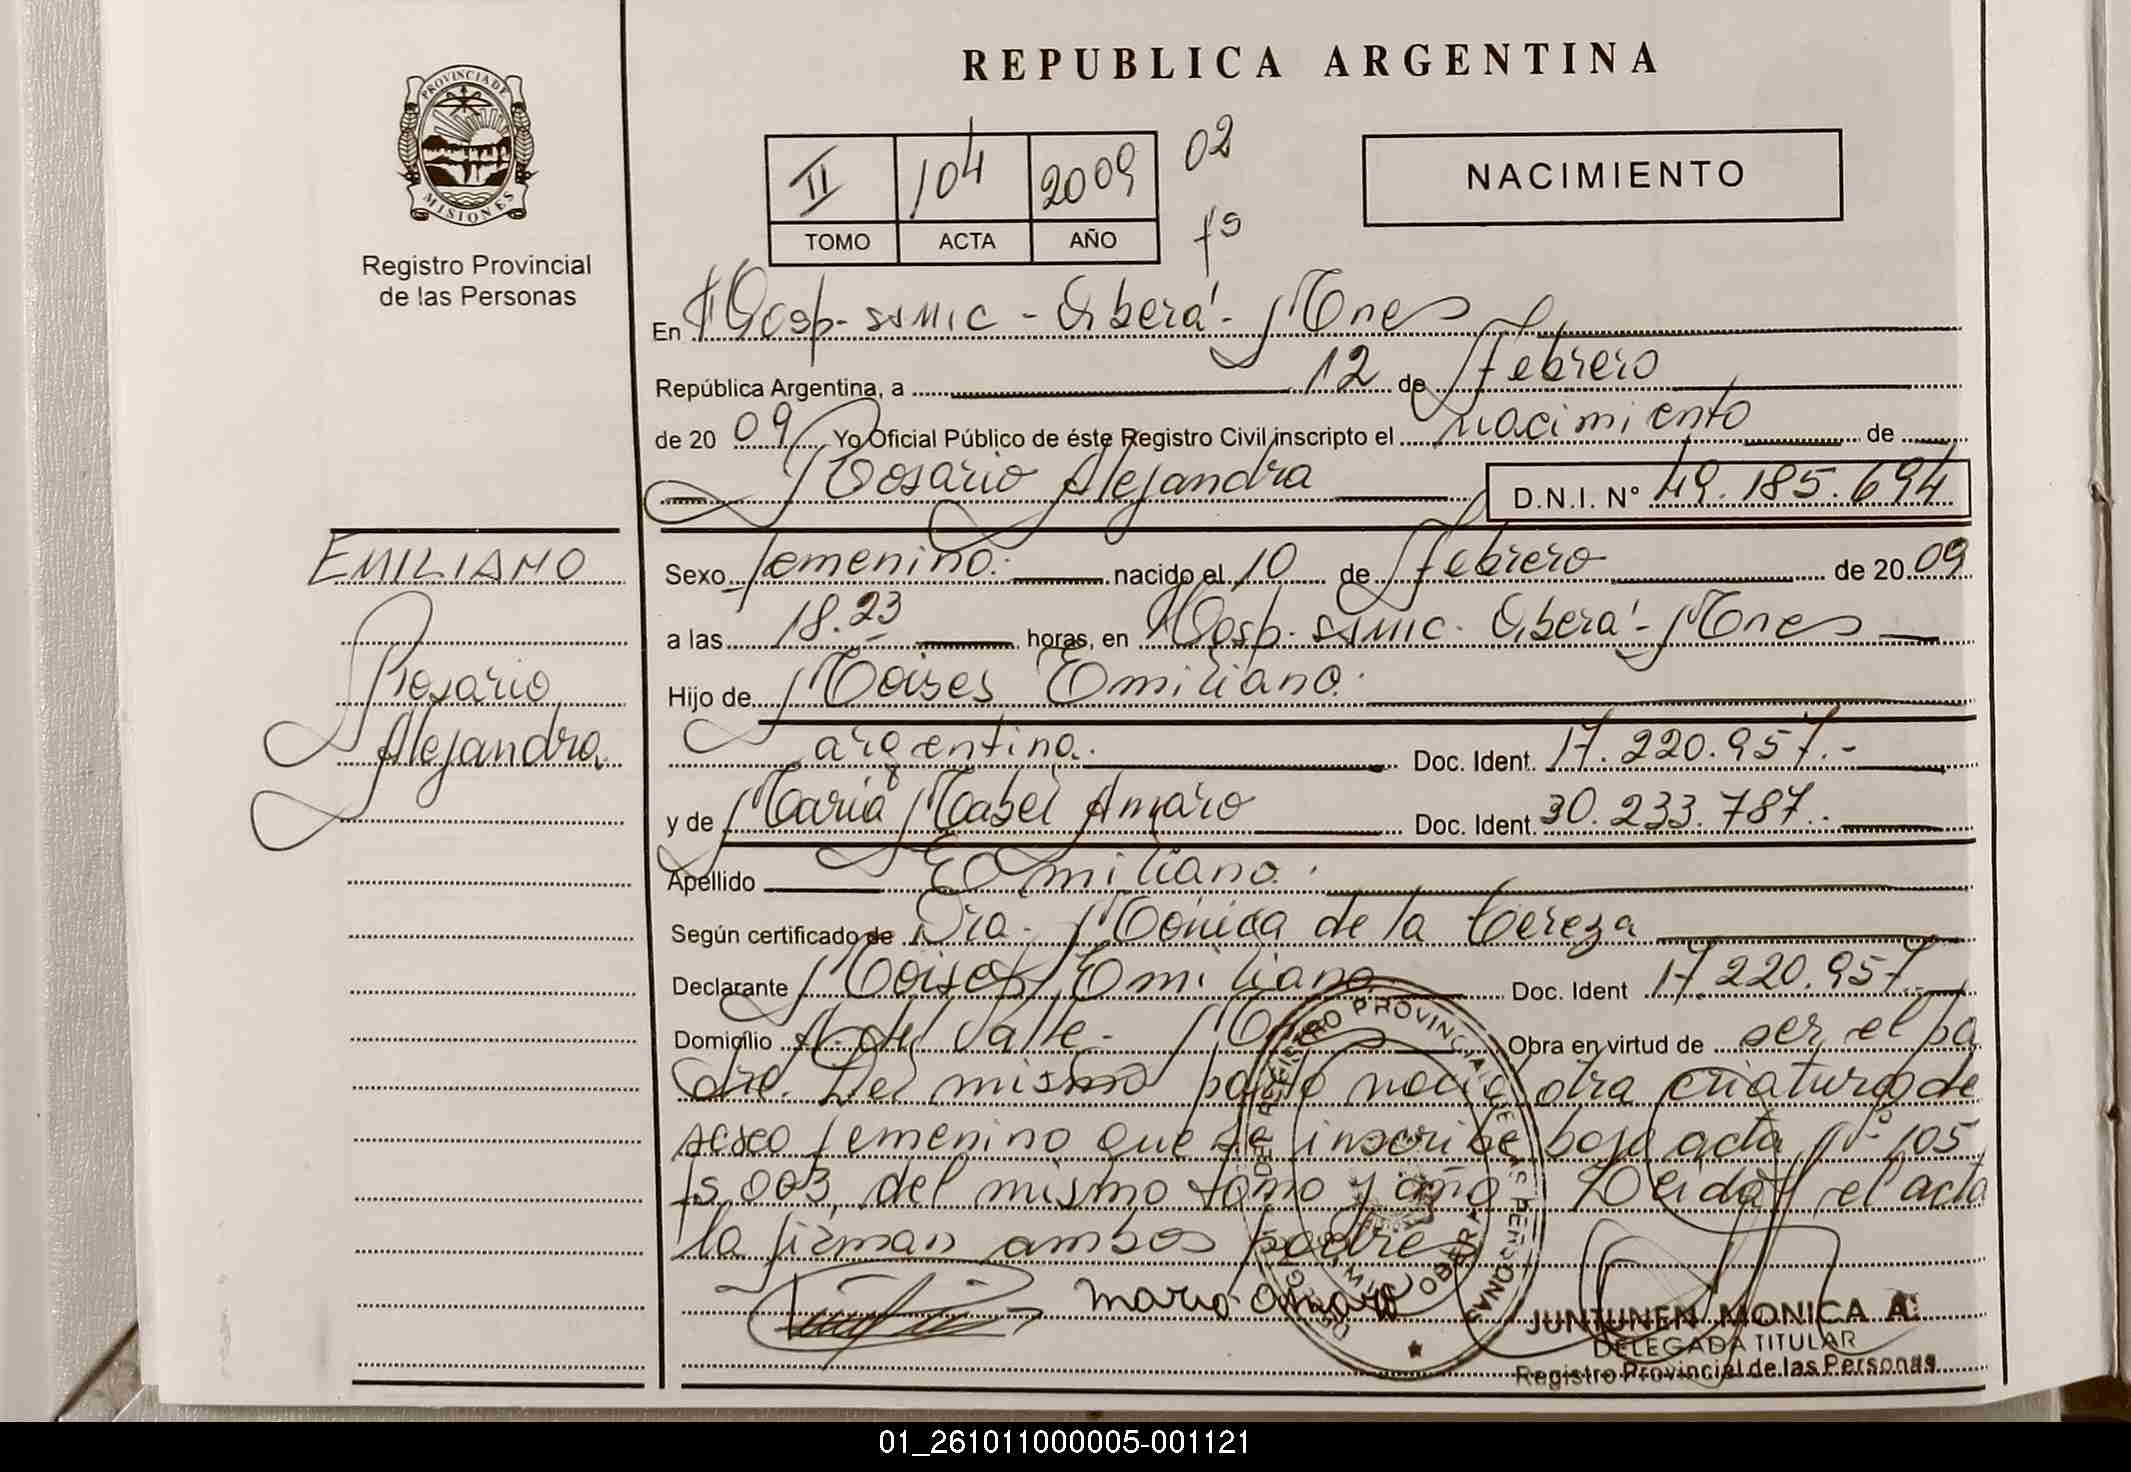 REPUBLICA ARGENTINA
PROVINCIA DE MISIONES
Registro Provincial
de las Personas
II 104 2009 02
TOMO ACTA AÑO fs
NACIMIENTO
En Hosp. SAMIC - Oberá - Mnes
República Argentina, a 12 de Febrero
de 2009 Yo Oficial Público de éste Registro Civil inscripto el nacimiento de
Rosario Alejandra D.N.I. N° 49.185.694
EMILIANO
Rosario
Alejandra
Sexo femenino. nacido el 10 de Febrero de 2009
a las 18.23 horas, en Hosp. SAMIC. Oberá - Mnes
Hijo de Moises Emiliano.
argentina. Doc. Ident. 17.220.957.-
y de Maria Mabel Amaro Doc. Ident. 30.233.787.
Apellido Emiliano.
Según certificado de Dra. Mónica de la Cereza
Declarante Moises Emiliano Doc. Ident 17.220.957.
Domicilio A. del Valle - Obra en virtud de ser el pa
dre. Del mismo parto nació otra criatura de
sexo femenino que se inscribe bajo acta N° 105
fs 003 del mismo tomo y año. Leida el acta
la firman ambos padres
maria amaro
JUNTUNEN MONICA A.
DELEGADA TITULAR
Registro Provincial de las Personas
REGISTRO PROVINCIAL DE LAS PERSONAS
OBERA
01_261011000005-001121